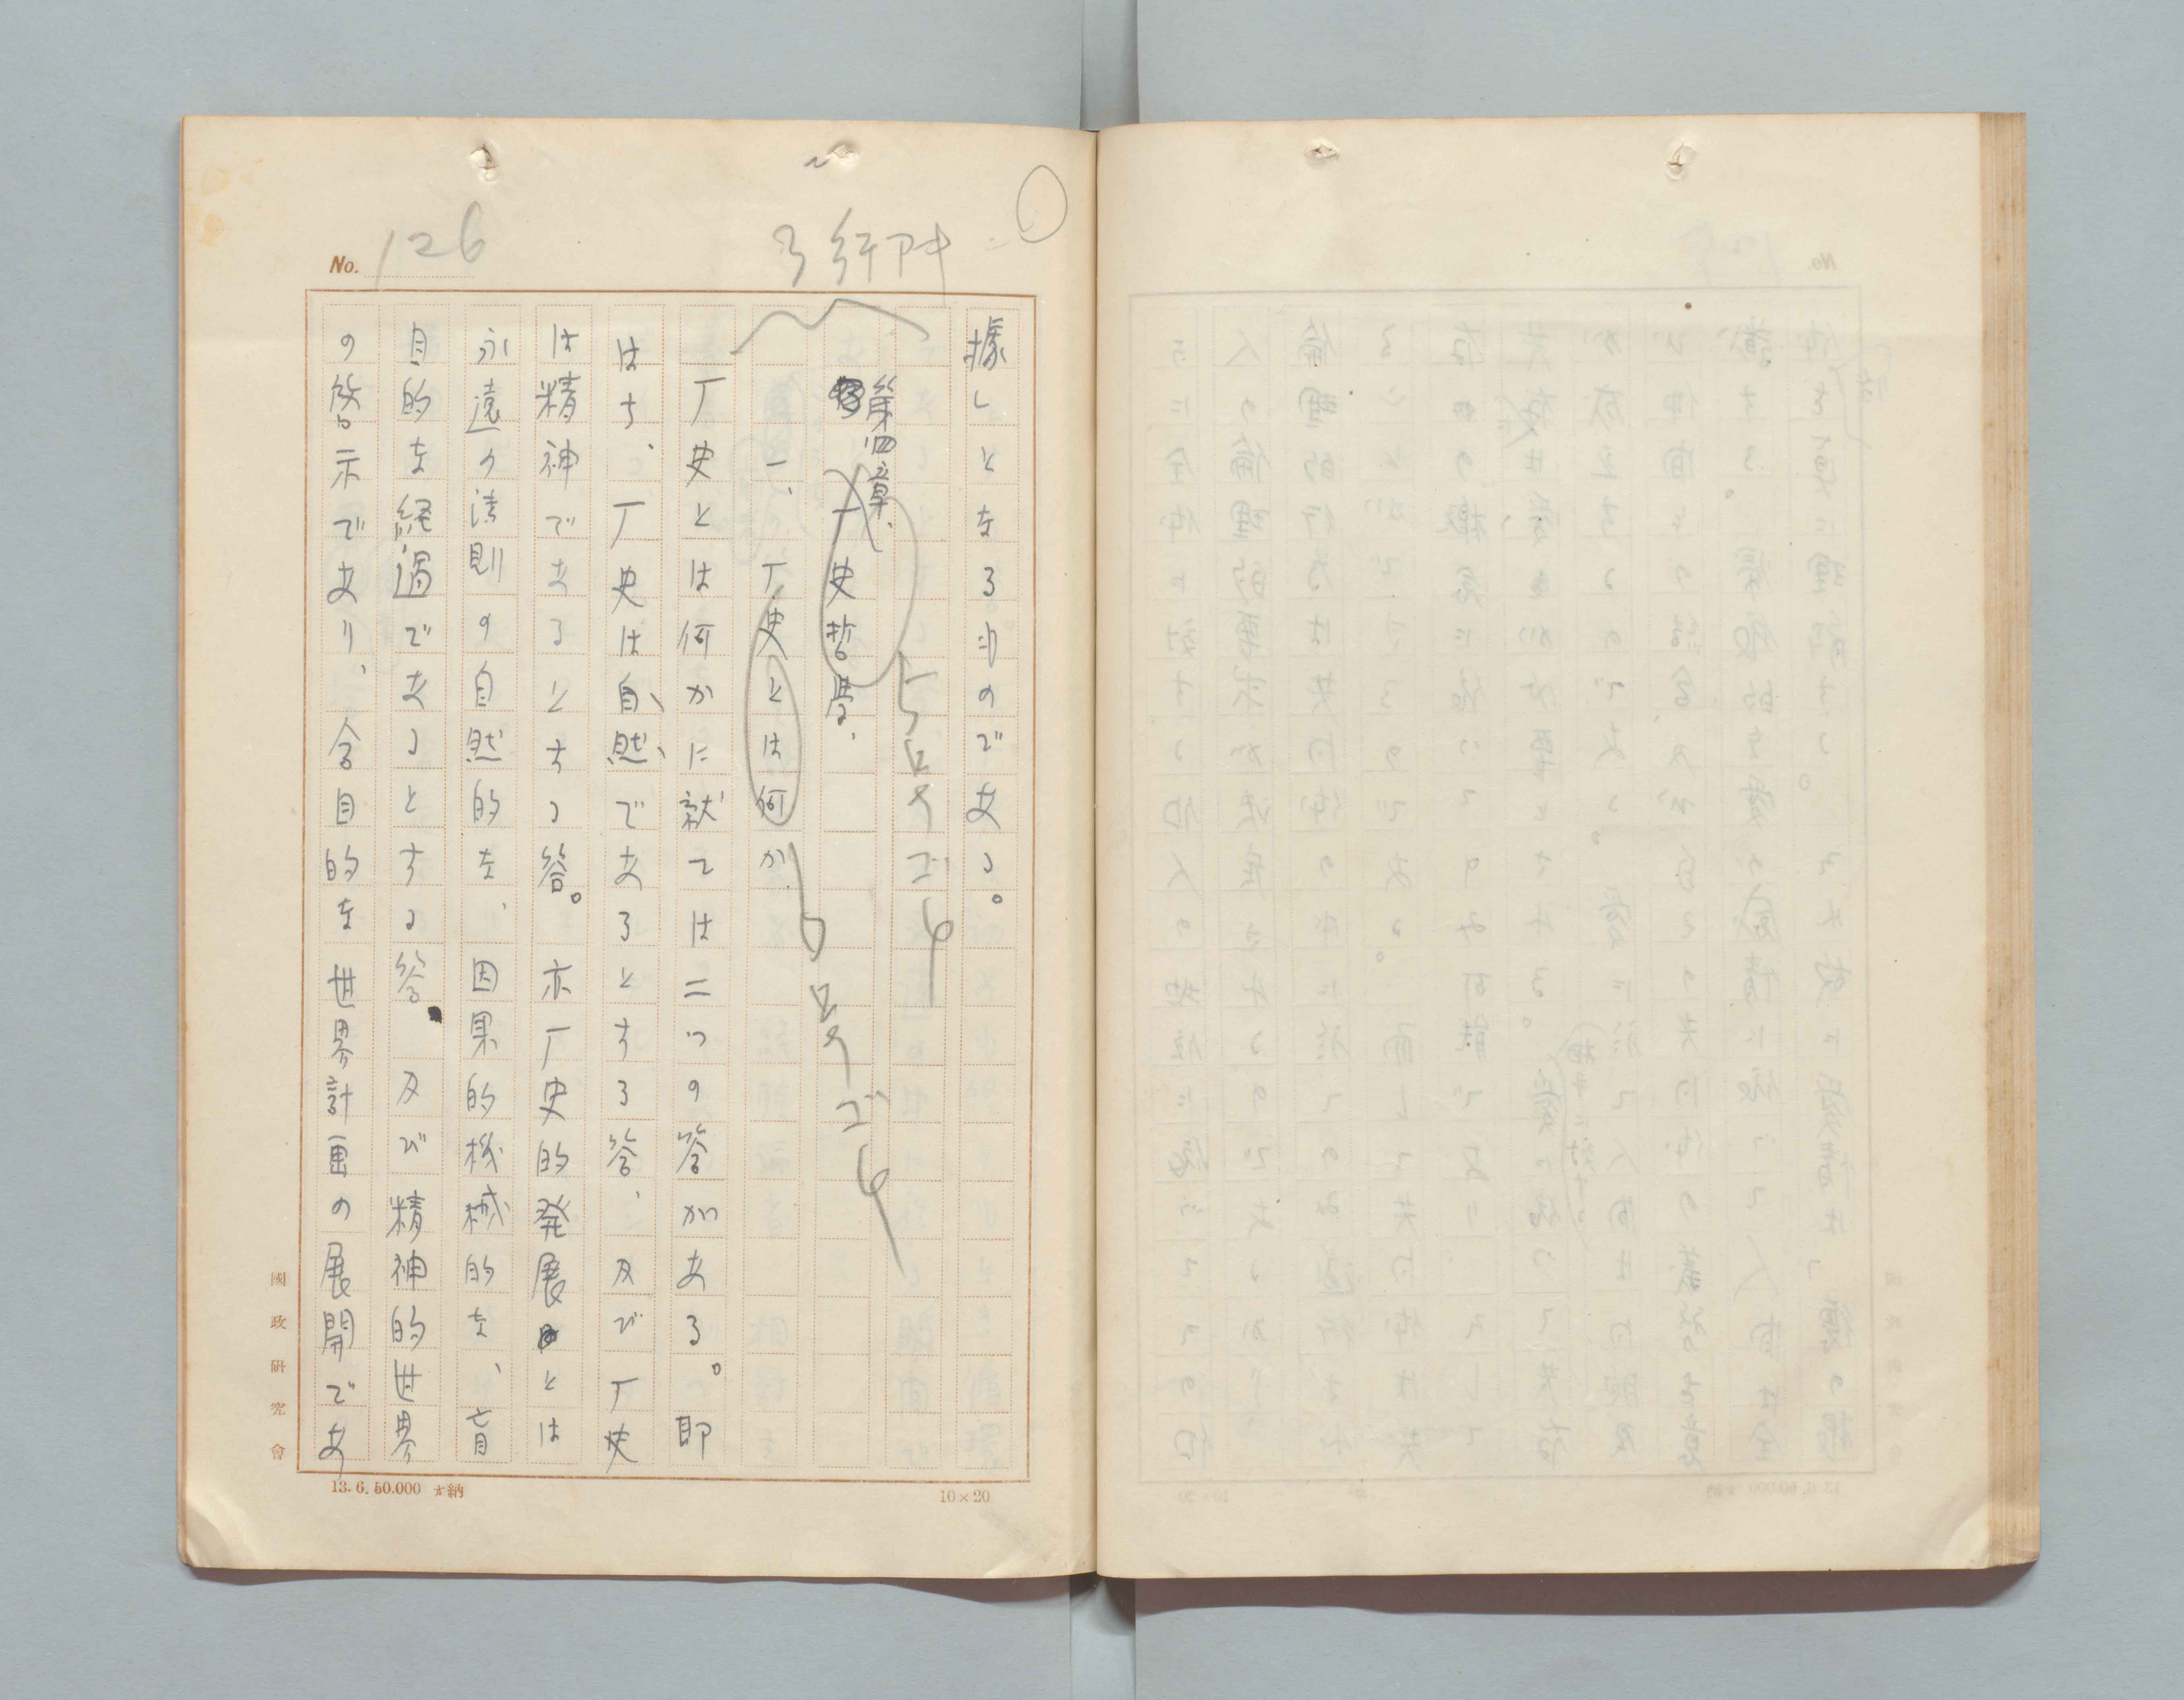 No. 126
3行アキ
據しとなるものである。
第四章、
厂史哲学、
5号ゴチ
一、厂史とは何か
5号ゴチ
厂史とは何かに就ては二つの答がある。即
はち、厂史は自然であるとする答、及び厂史
は精神であるとする答。亦厂史的発展とは
永遠の法則の自然的な、因果的機械的な、盲
目的な経過であるとする答。及び精神的世界
の啓示であり、合目的な世界計画の展開であ
國政研究會
13. 6. 50.000 納
10×20